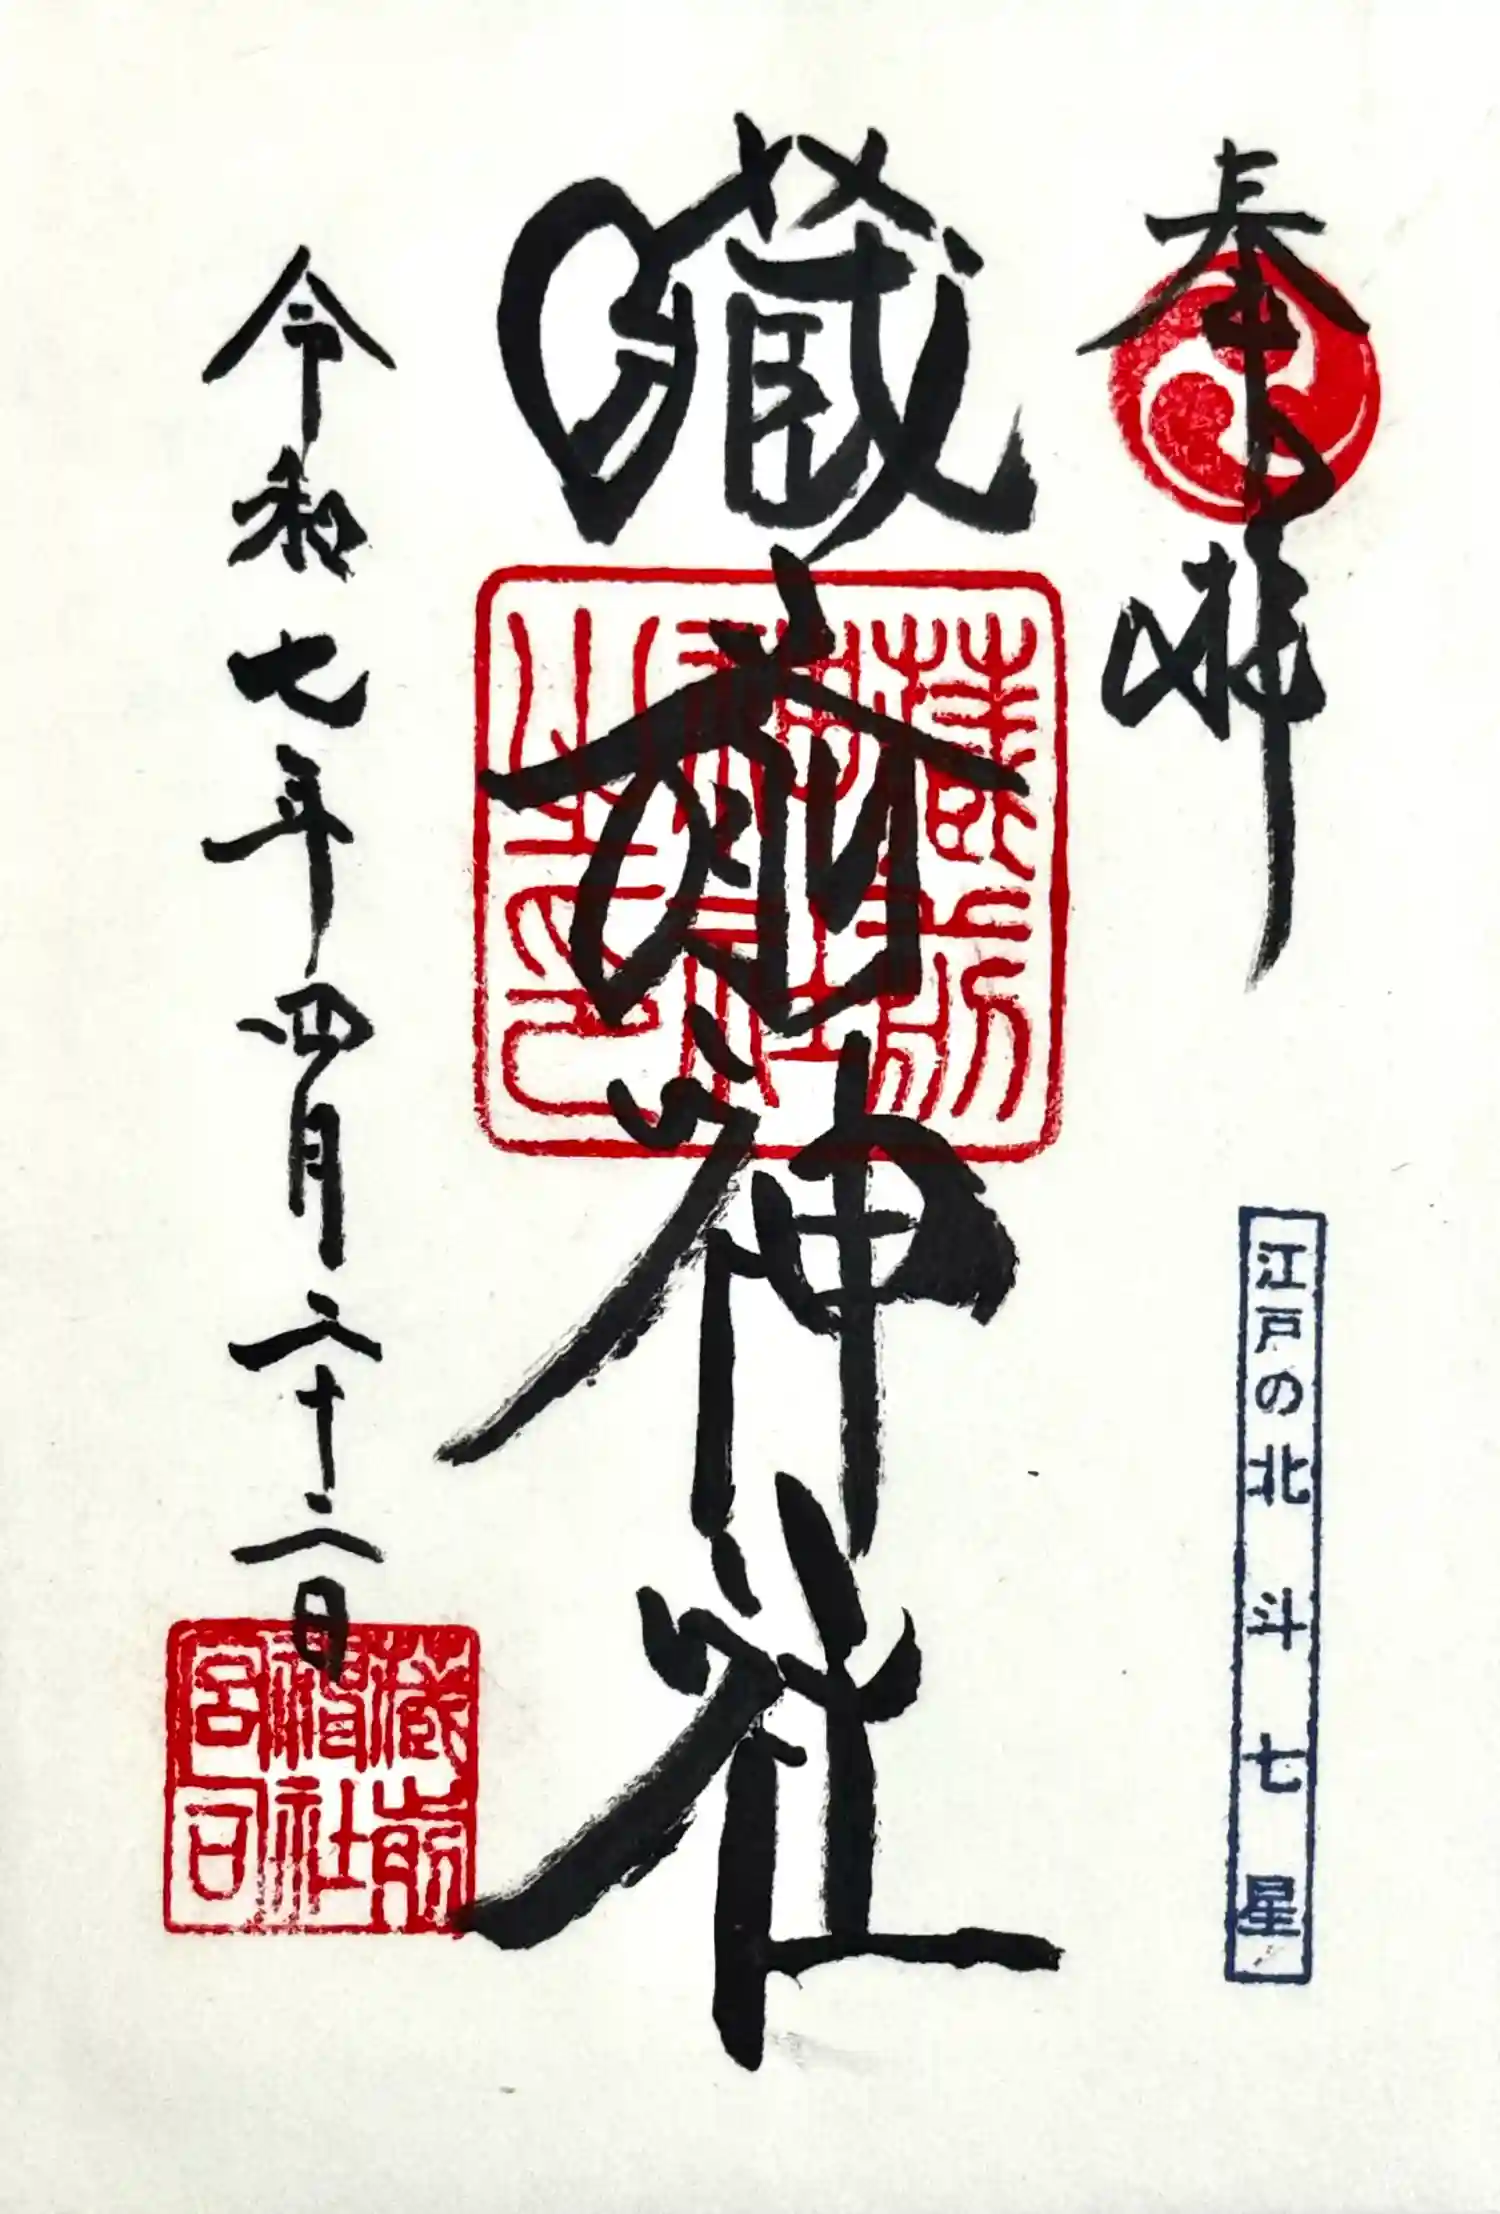 奉拝
江戸の北斗七星
藏前神社
藏前神社之印
令和七年四月二十二日
藏前
神社
宮司